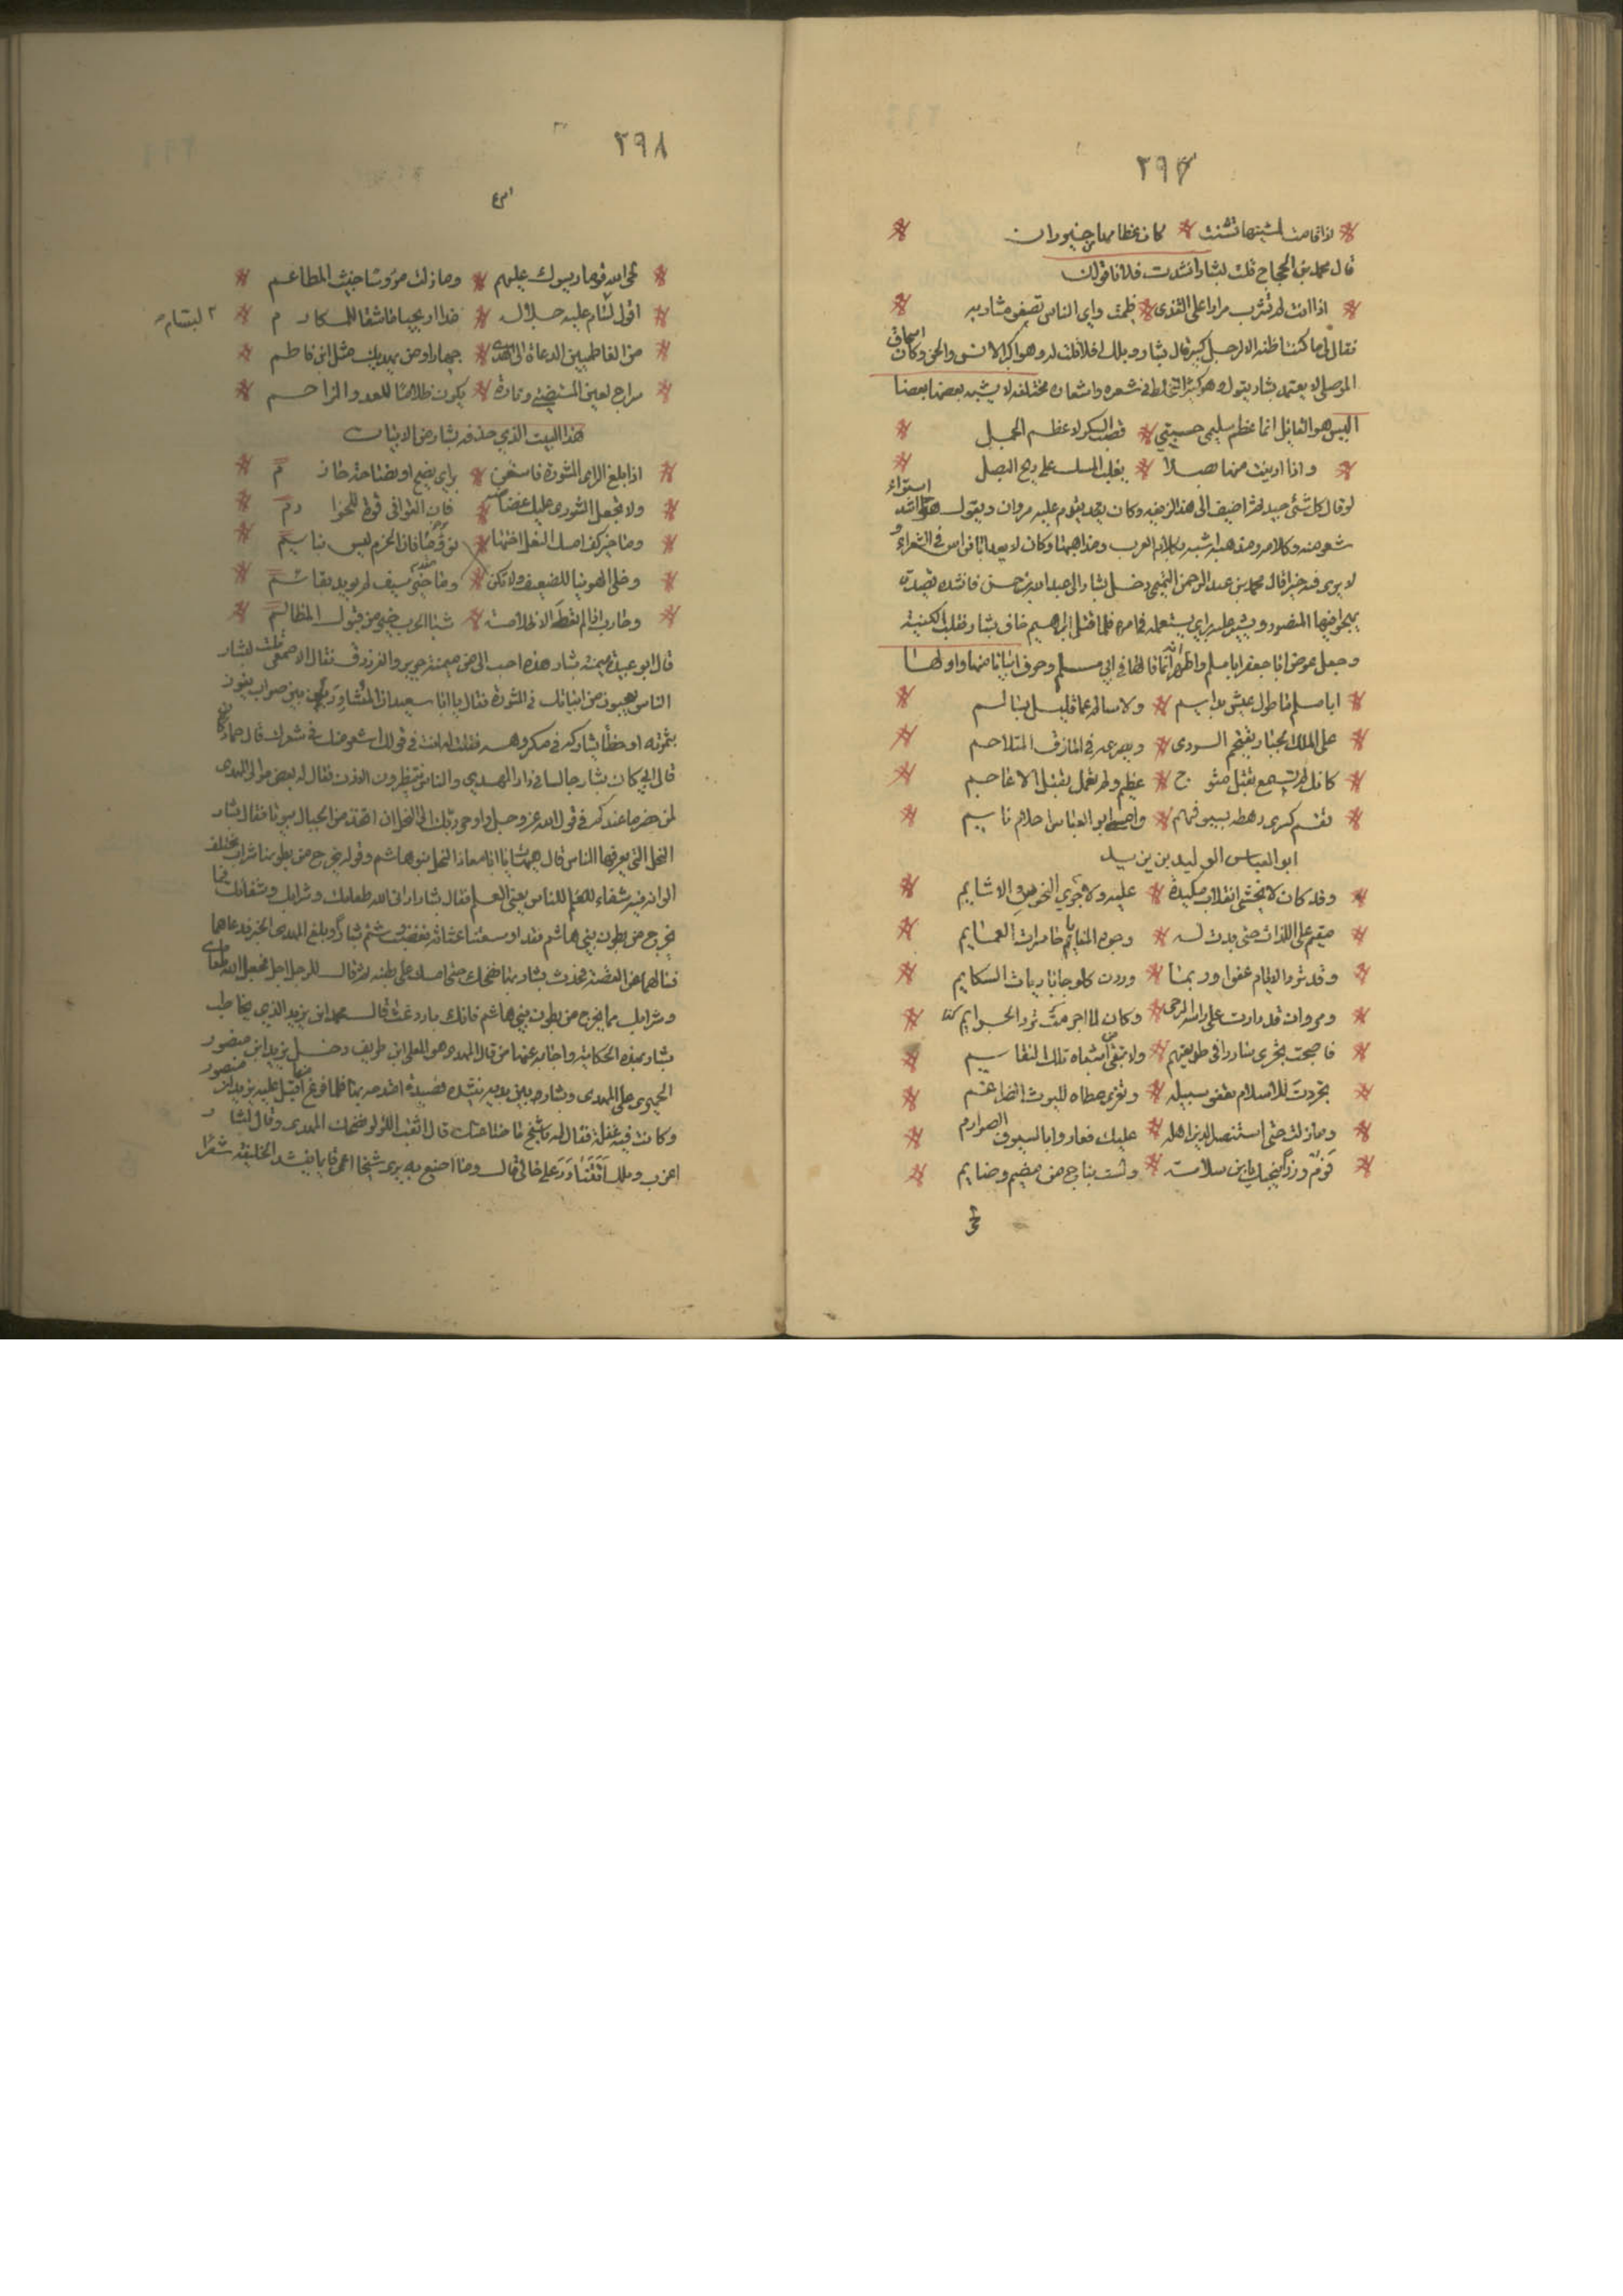 ٢٩٧
اذا قامت لمشيتها تثنت كان عظامها من خيزران
قال محمد بن الحجاج قلت لبشار انشدت فلانا قولك
اذا انت لم تشرب مرارا على القذى ظمئت واي الناس تصفو مشاربه
فقال لي ما كنت اظنه الا لرجل كبير قال بشار ويلك افلا قلت له هو اكبر الانس والجن وكان اسحاق
الموصلي لا يعتمد بشار يقول هو كثير التخليط في شعره واشعاره مختلفة لا يشبه بعضها بعضا
اليس هو القائل انما عظم سليمى حبيبتي قصب السكر لا عظم الجمل
واذا ادنيت منها بصلا غلب المسك على ريح البصل
لو قال كل شئ جيد ثم اضيف الى هذا لزيفه وكان يقدم عليه مروان ويقول هو اشد استواء
شعر منه وكلامه ومذهبه اشبه بكلام العرب ومذاهبها وكان لا يعد ابا نواس في الشعراء و
لا يرى فيه خيرا قال محمد بن عبد الرحمن التيمي دخل بشار الى عبد الله بن حسن فانشده قصيدة
يهجو فيها المنصور ويشير عليه براي يستعمله في امره فلما قتل ابراهيم خاف بشار فقلب الكنية
وجعل عوض ابا جعفر ابا مسلم واظهر انه انما قالها في ابي مسلم وحذف ابياتا منها واولها
ابا مسلم ما طول عيش بدايم ولا سالم عما قليل بسالم
على الملك الجبار يقتحم الردى ويصرعه في المازق المتلاحم
كانك لم تسمع بقتل متوج عظيم ولم تعمل بقتل الاعاجم
تقسم كسرى رهطه بسيوفهم وامسى ابو العباس احلام نايم
ابو العباس الوليد بن يزيد
وقد كان لا يخشى انقلاب مكيدة عليه ولا جري النحوس الاشايم
مقيم على اللذات حتى بدت له وجوه المنايا حاسرات العمايم
وقد ترد الايام عفوا وربما وردن كلوحا باديات الشكايم
ومروان قد دارت على راسه الرحى وكان لما اجرمت نزر الجرايم كذا
فاصبحت تجري سادرا في طريقهم ولا تتقي اشباه تلك النقايم
تجردت للاسلام تعفو سبيله وتعري مطاه لليوث الضراغم
وما زلت حتى استنصر الدين اهله عليك فعاذوا بالسيوف الصوارم
فرم وزرا ينجيك يا ابن سلامة ولست بناج من مضيم وضايم
٢٩٨
لحى الله قوما رئسوك عليهم وما زلت مرؤسا خبيث المطاعم
اقول لبسام عليه جلالة غدا اريحيا عاشقا للمكارم
٢ لبسام
من الفاطميين الدعاة الى الهدى جهارا ومن يهديك مثل ابن فاطم
سراج لعين المستضيئ وتارة يكون ظلاما للعدو المزاحم
هذا البيت الذي حذفه بشار من الابيات
اذا بلغ الراى المشورة فاستعن براي نصيح او نصاحة حازم
ولا تجعل الشورى عليك غضاضة فان الخوافي قوة للقوادم
وما خير كف امسك الغل اختها نؤوما فان الحزم ليس بنايم
وخل الهوينا للضعيف ولا تكن وما خير سيف لم يويد بقائم
وحارب اذا لم تعط الا ظلامة شبا الحرب خير من قبول المظالم
قال ابو عبيدة ميمية بشار هذه احب الي من ميمية جرير والفرزدق فقال الاصمعي قلت لبشار
الناس يعجبون من ابياتك في المشورة فقال يا ابا سعيد ان المشاور بين صواب يفوز
بثمرته او خطأ يشارك في مكروهه فقلت له انت في قولك اشعر منك في شعرك قال حماد
قال ابي كان بشار جالسا في دار المهدي والناس ينتظرون الاذن فقال له بعض موالى المهدى
لمن حضر ما عندكم في قول الله عز وجل واوحى ربك الى النحل ان اتخذي من الجبال بيوتا فقال بشار
النحل التي يعرفها الناس قال هيهات يا ابا معاذ النحل بنو هاشم وقوله يخرج من بطونها شراب مختلف
الوانه فيه شفاء للناس يعني العلم فقال بشار اراني الله طعامك وشرابك وشفائك فيما
يخرج من بطون بني هاشم فقد اوسعتنا غثاثة فغضب وشتم بشارا وبلغ المهدى الخبر فدعاهما
فسالهما عن القصة فحدث بشار بها فضحك حتى امسك على بطنه ثم قال للرجل اجل فجعل الله طعامك
وشرابك مما يخرج من بطون بني هاشم فانك بارد غث قال محمد بن يزيد الذي خاطب
بشار بهذه الحكاية واجابه عنها من قال المهدي هو المعلى بن طريف دخل يزيد ابن منصور
الحميري على المهدى وبشار بين يديه ينشده قصيدة امتدحه بها فلما فرغ منها اقبل عليه يزيد ابن منصور
وكانت فيه غفلة فقال له يا شيخ ما صناعتك قال اثقب اللؤلؤ فضحك المهدى وقال لبشار
اعزب ويلك اتتنادر على خالي قال وما اصنع به يرى شيخا اعمى قايما ينشد الخليفة شعرا